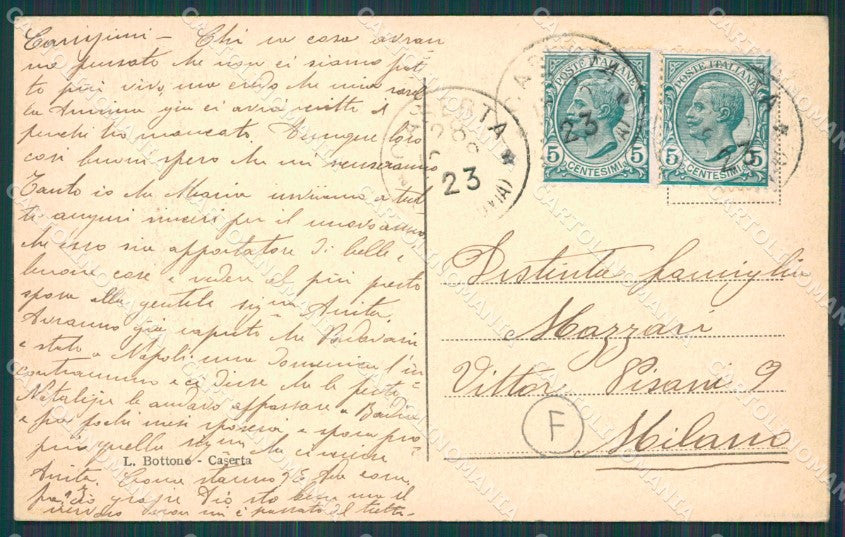 Carissimi - Chi sa cosa avran
no pensato che non ci siamo fat
ti più vivi, ma credo che mia
la Annina già ci avrà scritto il
perchè ho mancato. Dunque loro
così buoni spero che mi scuseranno
Tanto io che Maria inviamo a tut
ti auguri sinceri per il nuovo anno
che esso sia apportatore di belle e
buone cose e vedere al più presto
sposa alla gentile sigᵐᵃ Anita.
Avranno già saputo che
è stato a Napoli una Domenica l'in
contrammo e ci disse che le feste
Natalizie le andava a passare a
e fra pochi mesi sposerà e sposa pro
prio quella sigᵐᵃ che ci disse
Anita. Come stanno? E
io grazie Dio sto bene ma il
nervoso non mi è passato del tutto-
L. Bottone - Caserta
CASERTA
23
POSTE ITALIANE
5 CENTESIMI 5
POSTE ITALIANE
5 CENTESIMI 5
Distinta famiglia
Mazzari
Vittor Pisani 9
Milano
F
CARTOLINOMANIA